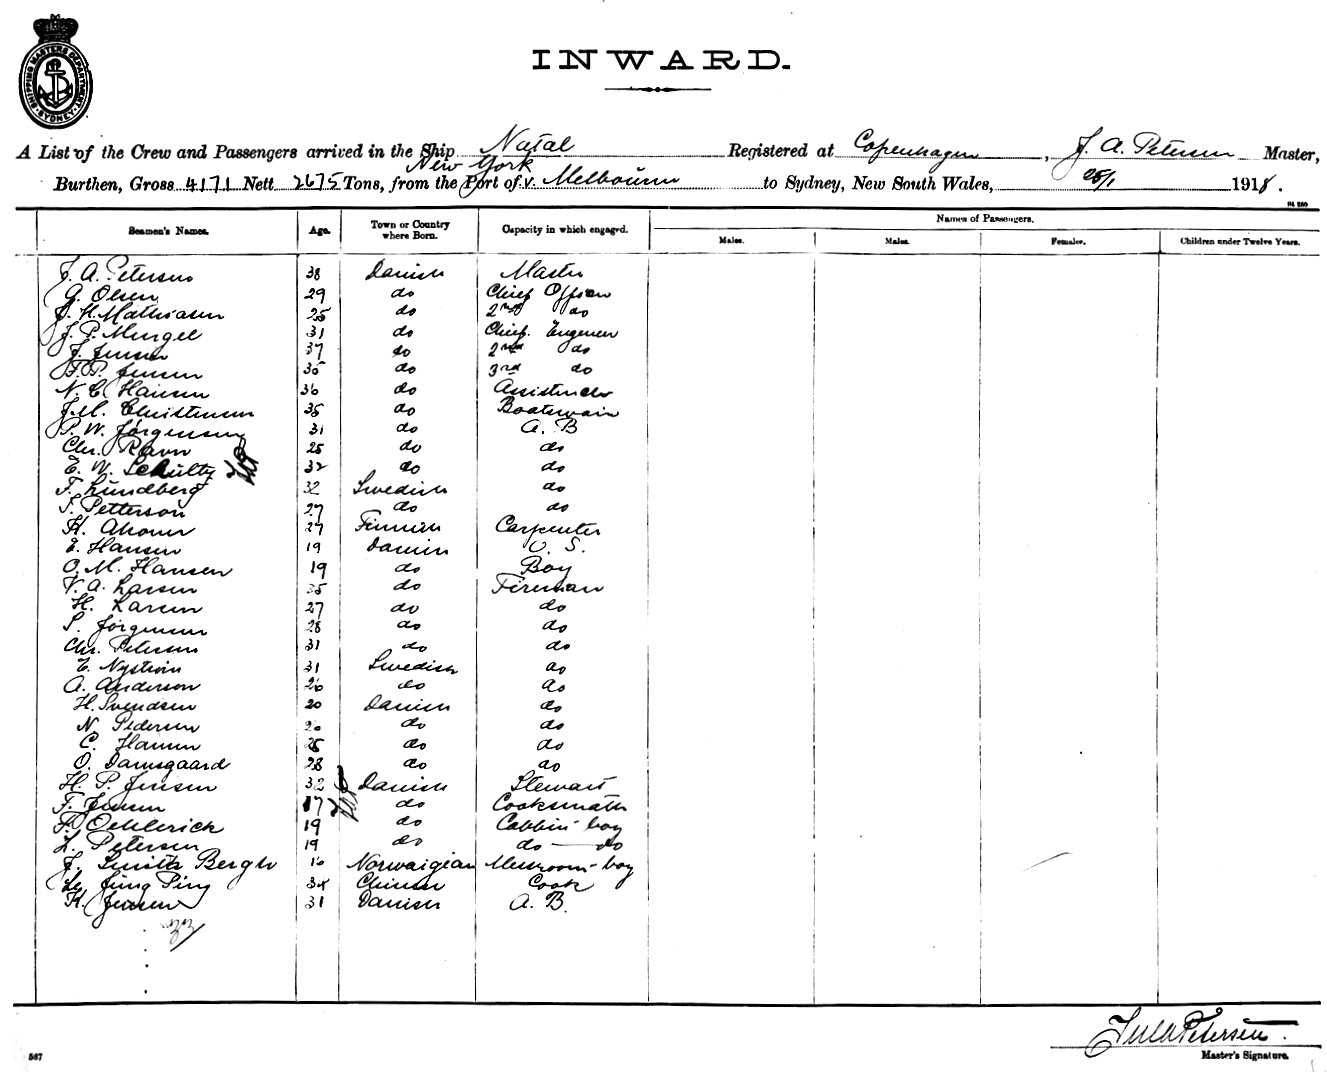 SHIPPING MASTERS DEPARTMENT SYDNEY
INWARD.
A List of the Crew and Passengers arrived in the Ship Natal Registered at Copenhagen, J. A. Petersen Master,
New York
Burthen, Gross 4171 Nett 2675 Tons, from the Port of v. Melbourne to Sydney, New South Wales, 25/1 1918.
Names of Passengers.
Seamen's Names. Age. Town or Country where Born. Capacity in which engaged. Males. Males. Females. Children under Twelve Years.
J. A. Petersen 38 Danish Master
G. Olsen 29 do Chief Officer
H. Mathiasen 25 do 2nd do
J. P. Mungel 31 do Chief. Engineer
J. Jensen 37 do 2nd do
F. P. Jensen 35 do 3rd do
N. C. Hansen 36 do
J. M. Christensen 35 do Boatswain
P. W. Jörgensen 31 do A. B
Chr. Ravn 25 do do
E. W. Schultz 32 do do
F. Lundberg 32 Swedish do
Petterson 27 do do
H. 27 Finnish Carpenter
E. Hansen 19 Danish O. S.
O. M. Hansen 19 do Boy
V. A. Larsen 35 do Fireman
H. Larsen 27 do do
S. Jörgensen 28 do do
Chr. Petersen 31 do do
E. Nyström 31 Swedish do
A. Anderson 26 do do
H. Svendsen 20 Danish do
N Pedersen 26 do do
C. Hansen 25 do do
O. Damsgaard 28 do do
H. P. Jensen 32 Danish Stewart
F. Jensen 17 do Cooksmath
F. Oehlerick 19 do Cabbin boy
L. Petersen 19 do do — do
J. Bergh 16 Norwaigian Messroom-boy
Jung Ping 34 Chinese Cook
K. Jensen 31 Danish A. B.
33
Petersen.
Master's Signature.
587